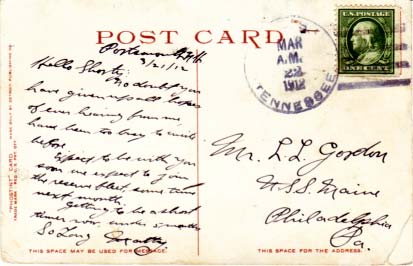 POST CARD
Portsmouth N.H.
3/21/12
Hello Shorty,
No doubt you
have given up all hopes
of ever hearing from me
have been too busy to write
before.
Expect to be with you
soon, we expect to join
the reserve fleet, some time
next month.
Getting to be a short
timer now under 5 months
So Long
THIS SPACE MAY BE USED FOR MESSAGE.
"PHOSTINT" CARD
MADE ONLY BY DETROIT PUBLISHING CO.
MAR
A.M.
22
1912
TENNESSEE
U.S. POSTAGE
ONE CENT
Mr. L.L. Gordon
U.S.S. Maine
Philadelphia
Pa.
THIS SPACE FOR THE ADDRESS.